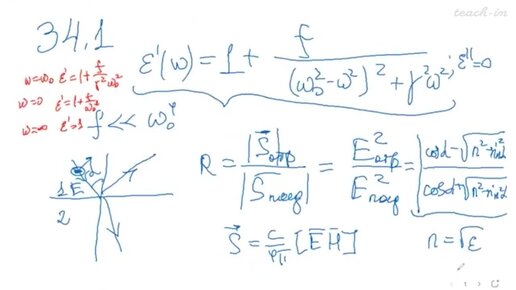 teach-in
34.1
ε'(ω) = 1 + f / ((ω₀² - ω²)² + γ²ω²) ; ε'' = 0
ω = ω₀ ε' = 1 + f / γ²ω₀²
ω = 0 ε' = 1 + f / ω₀⁴
ω = ∞ ε' = 1
f << ω₀⁴
R = |S⃗отр| / |S⃗пад| = E²отр / E²пад = |cosα - √(n² - sin²α) / cosα + √(n² - sin²α)|
1 E α
2
S⃗ = c/4π [E⃗ H⃗]
n = √ε